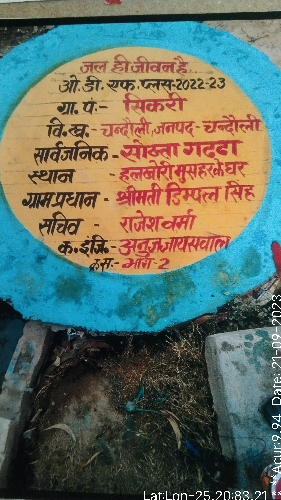 जल ही जीवन है..
ओ.डी.एफ. प्लस-2022-23
ग्रा. पं:- सिकरी
वि.ख.- चन्दौली, जनपद - चन्दौली
सार्वजनिक - सोख्ता गढ्ढा
स्थान - हनखोरी मुसहर के घर
ग्राम प्रधान - श्रीमती डिम्पल सिंह
सचिव - राजेश वर्मा
क.इंजि.- अनुज जायसवाल
- भाग-2
Lat:Lon-25,20:83,21
**Acur:9.94, Date: 21-09-2023